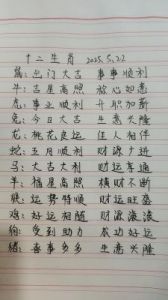 十二生肖 2025.5.22
鼠：出门大吉 事事顺利
牛：吉星高照 称心如意
虎：事业顺利 升职加薪
兔：今日大吉 生意兴隆
龙：桃花良运 佳人相伴
蛇：五月顺利 财源广进
马：大吉大利 财运亨通
羊：福星高照 横财不断
猴：运势特顺 财运旺盛
鸡：好运相随 财源滚滚
狗：受到助力 成功好运
猪：喜事多多 生意兴隆